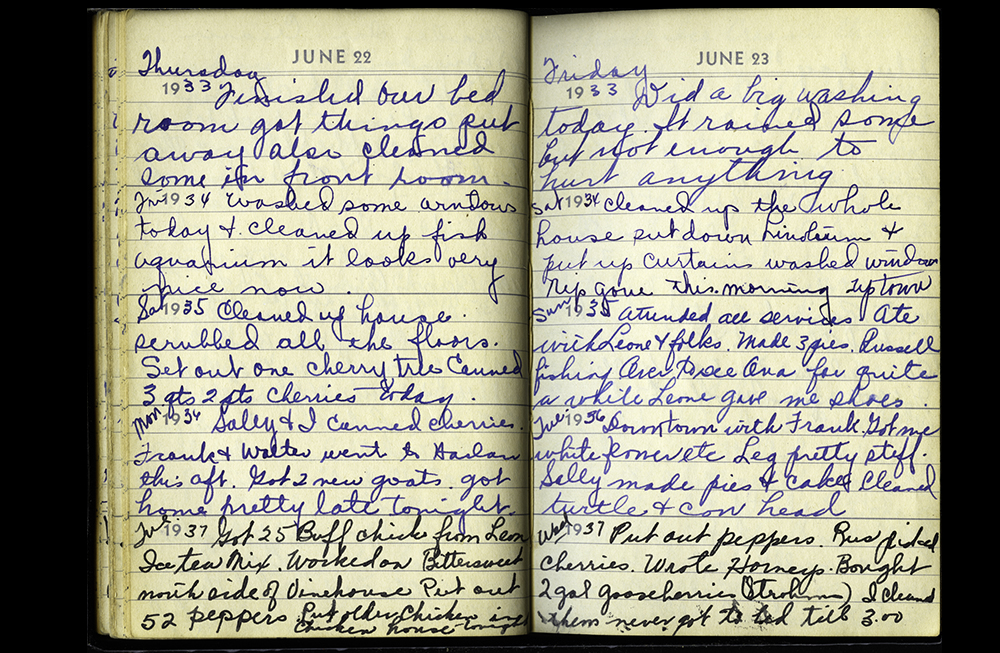 JUNE 22
Thursday
1933 Finished our bed
room got things put
away also cleaned
some in front room.
Fri 1934 Washed some windows
today & cleaned up fish
aquarium it looks very
nice now.
Sat 1935 Cleaned up house.
scrubbed all the floors.
Set out one cherry tree Canned
3 qts 2 pts cherries today.
Mon 1936 Sally & I canned cherries.
Frank & Walter went to Harlan
this aft. Got 2 new goats. got
home pretty late tonight.
Tue 1937 Got 25 Buff chick from Leon
Ice tea Mix. Worked on Bittersweet
north side of Vinehouse Put out
52 peppers. Put older Chicken in
Chicken house tonight
JUNE 23
Friday
1933 Did a big washing
today. It rained some
but not enough to
hurt anything.
Sat 1934 Cleaned up the whole
house put down Linoleum &
put up curtains washed windows
Rip gone this morning uptown
Sun 1935 Attended all services Ate
with Leone & folks. Made 3 pies. Russell
fishing Over to see Ona for quite
a while Leone gave me shoes.
Tue 1936 Downtown with Frank. Got me
white etc Leg pretty stiff.
Sally made pies & cakes Cleaned
turtle & cow head
Wed 1937 Put out peppers. Rus picked
cherries. Wrote Horneys. Bought
2 gal gooseberries I cleaned
them never got to bed till 3.00